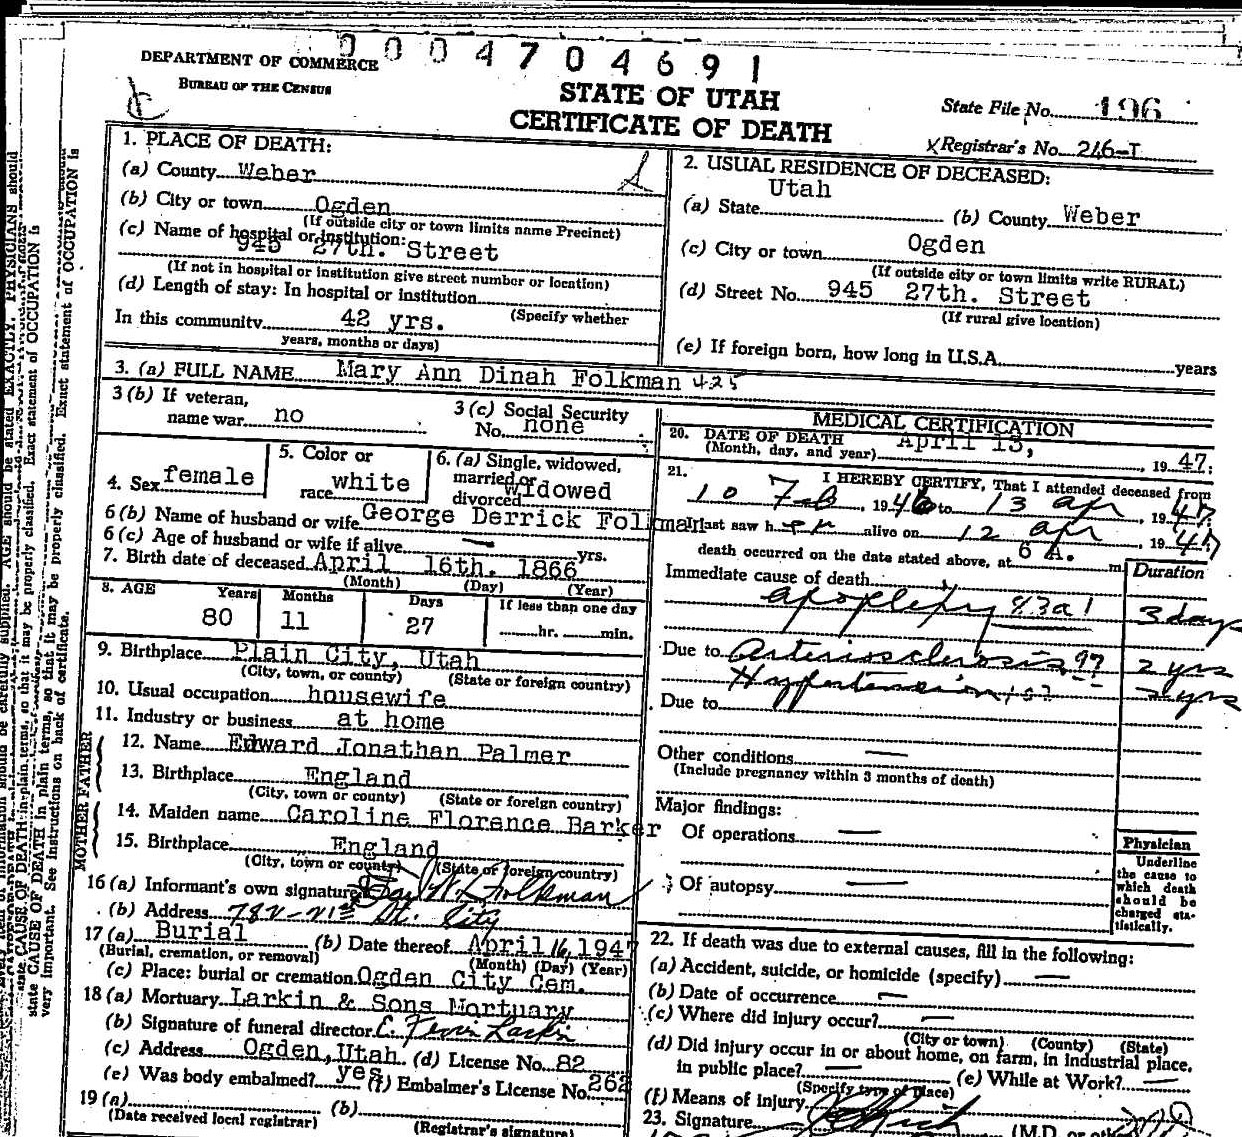 0004704691
DEPARTMENT OF COMMERCE
BUREAU OF THE CENSUS
STATE OF UTAH
CERTIFICATE OF DEATH
State File No. 196
Registrar's No. 246-T
1. PLACE OF DEATH:
(a) County Weber
(b) City or town Ogden
(If outside city or town limits name Precinct)
(c) Name of hospital or institution:
945 27th. Street
(If not in hospital or institution give street number or location)
(d) Length of stay: In hospital or institution
(Specify whether
In this community 42 yrs.
years, months or days)
2. USUAL RESIDENCE OF DECEASED:
(a) State Utah (b) County Weber
(c) City or town Ogden
(If outside city or town limits write RURAL)
(d) Street No. 945 27th. Street
(If rural give location)
(e) If foreign born, how long in U.S.A. years
3. (a) FULL NAME Mary Ann Dinah Folkman 425
3 (b) If veteran,
name war no
3 (c) Social Security
No. none
4. Sex female
5. Color or
race white
6. (a) Single, widowed,
married or
divorced widowed
6 (b) Name of husband or wife George Derrick Folkman
6 (c) Age of husband or wife if alive — yrs.
7. Birth date of deceased April 16th. 1866
(Month) (Day) (Year)
8. AGE Years Months Days If less than one day
80 11 27 hr. min.
9. Birthplace Plain City, Utah
(City, town, or county) (State or foreign country)
10. Usual occupation housewife
11. Industry or business at home
FATHER
12. Name Edward Jonathan Palmer
13. Birthplace England
(City, town or county) (State or foreign country)
MOTHER
14. Maiden name Caroline Florence Barker
15. Birthplace England
(City, town or county) (State or foreign country)
16 (a) Informant's own signature Folkman
(b) Address 782-21st St. City
17 (a) Burial (b) Date thereof April 16, 1947
(Burial, cremation, or removal) (Month) (Day) (Year)
(c) Place: burial or cremation Ogden City Cem.
18 (a) Mortuary Larkin & Sons Mortuary
(b) Signature of funeral director Larkin
(c) Address Ogden, Utah (d) License No. 82
(e) Was body embalmed? yes (f) Embalmer's License No. 262
19 (a) (b)
(Date received local registrar) (Registrar's signature)
MEDICAL CERTIFICATION
20. DATE OF DEATH April 13,
(Month, day, and year) , 1947.
21. I HEREBY CERTIFY, That I attended deceased from
10 Feb , 1946 to 13 Apr , 1947
I last saw her alive on 12 Apr , 1947
death occurred on the date stated above, at 6 A. m.
Duration
Immediate cause of death
apoplexy 83a1 3 days
Due to Arteriosclerosis 97 2 yrs
Hypertension yrs
Due to
Other conditions —
(Include pregnancy within 3 months of death)
Major findings:
Of operations —
Of autopsy —
Physician
Underline
the cause to
which death
should be
charged sta-
tistically.
22. If death was due to external causes, fill in the following:
(a) Accident, suicide, or homicide (specify) —
(b) Date of occurrence —
(c) Where did injury occur? —
(City or town) (County) (State)
(d) Did injury occur in or about home, on farm, in industrial place,
in public place? — (e) While at Work? —
(Specify type of place)
(f) Means of injury
23. Signature Rich MD
(M.D. or